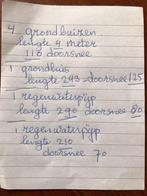 4 grondbuizen
lengte 4 meter
110 doorsnee
1 grondbuis
lengte 243 doorsnee 125
1 regenwaterpijp
lengte 290 doorsnee 80
1 regenwaterpijp
lengte 210
doorsnee 70